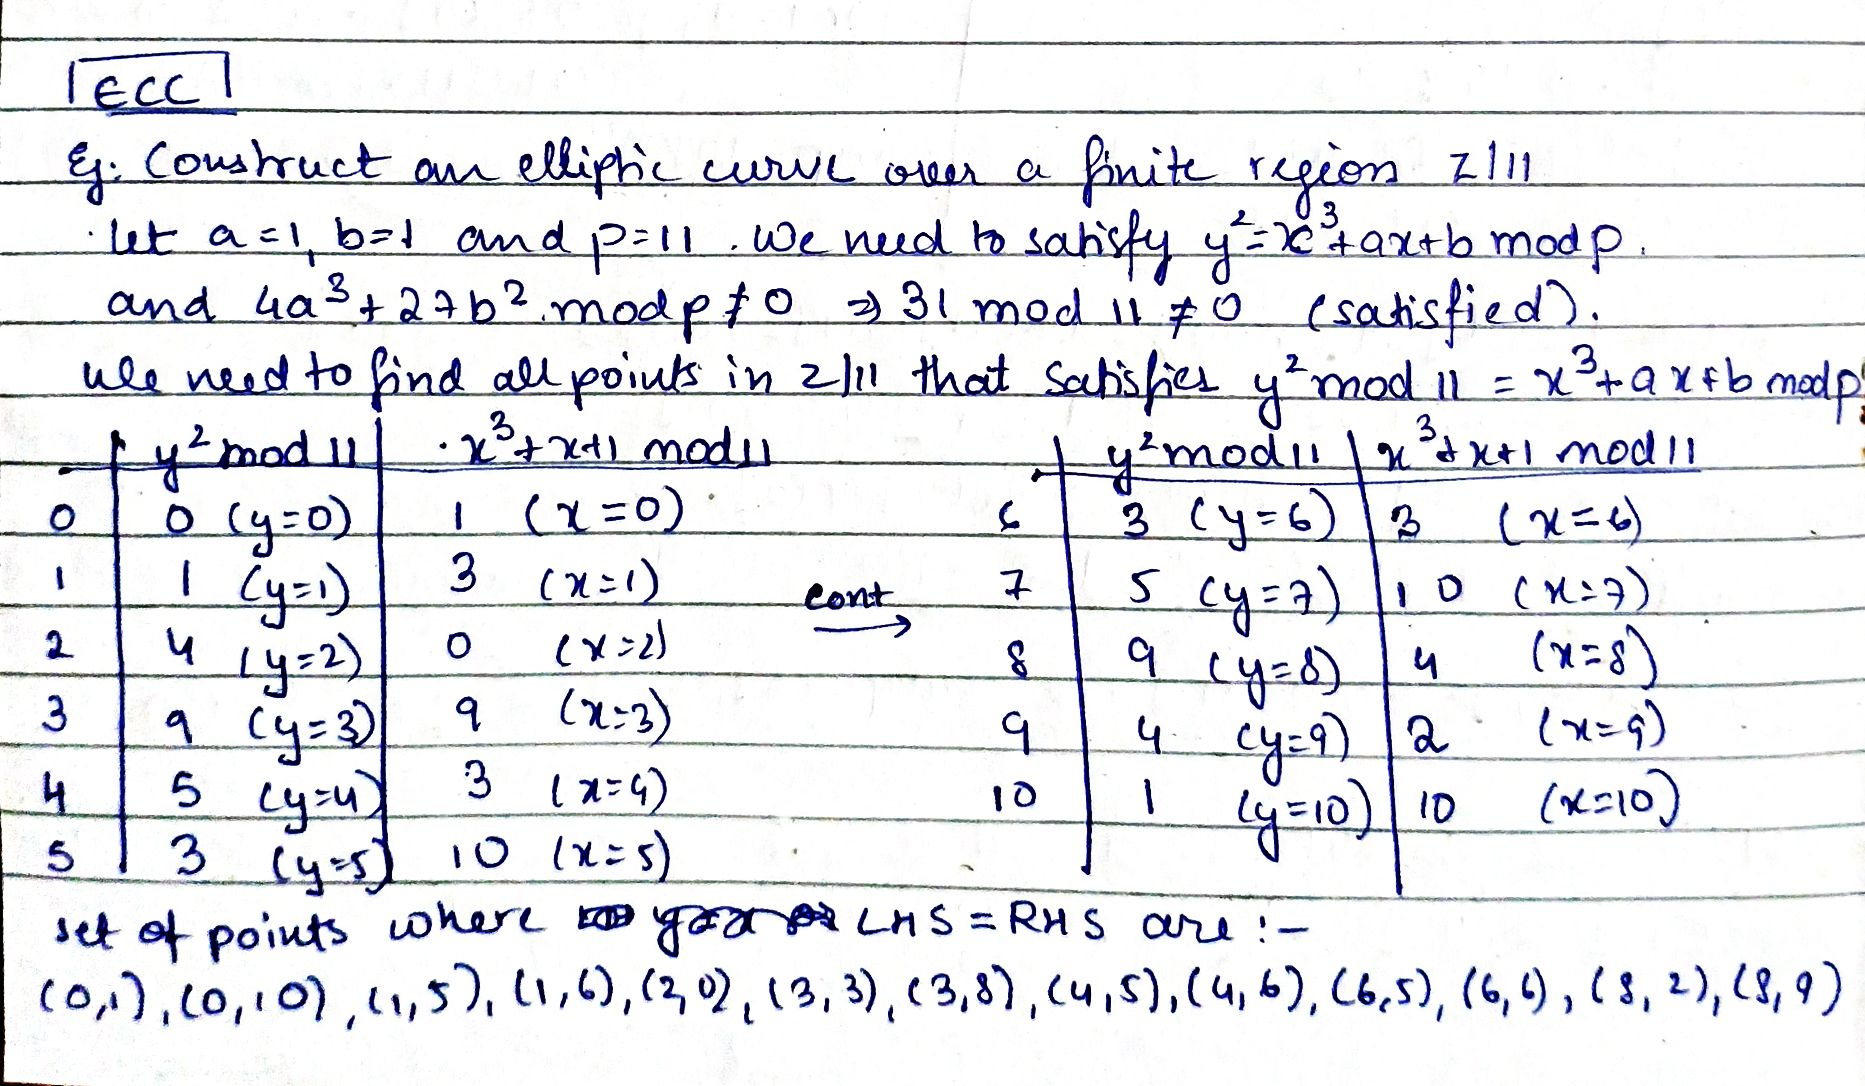 ECC
Eg. Construct an elliptic curve over a finite region Z/11
Let a=1, b=1 and p=11. We need to satisfy y²=x³+ax+b mod p.
and 4a³+27b² mod p ≠ 0 ⇒ 31 mod 11 ≠ 0 (satisfied).
We need to find all points in Z/11 that satisfies y² mod 11 = x³+ax+b mod p
y² mod 11 | x³+x+1 mod 11
0 | 0 (y=0) | 1 (x=0)
1 | 1 (y=1) | 3 (x=1)
2 | 4 (y=2) | 0 (x=2)
3 | 9 (y=3) | 9 (x=3)
4 | 5 (y=4) | 3 (x=4)
5 | 3 (y=5) | 10 (x=5)
cont →
y² mod 11 | x³+x+1 mod 11
6 | 3 (y=6) | 3 (x=6)
7 | 5 (y=7) | 10 (x=7)
8 | 9 (y=8) | 4 (x=8)
9 | 4 (y=9) | 2 (x=9)
10 | 1 (y=10) | 10 (x=10)
set of points where LHS = RHS are :-
(0,1), (0,10), (1,5), (1,6), (2,0), (3,3), (3,8), (4,5), (4,6), (6,5), (6,6), (8,2), (8,9)